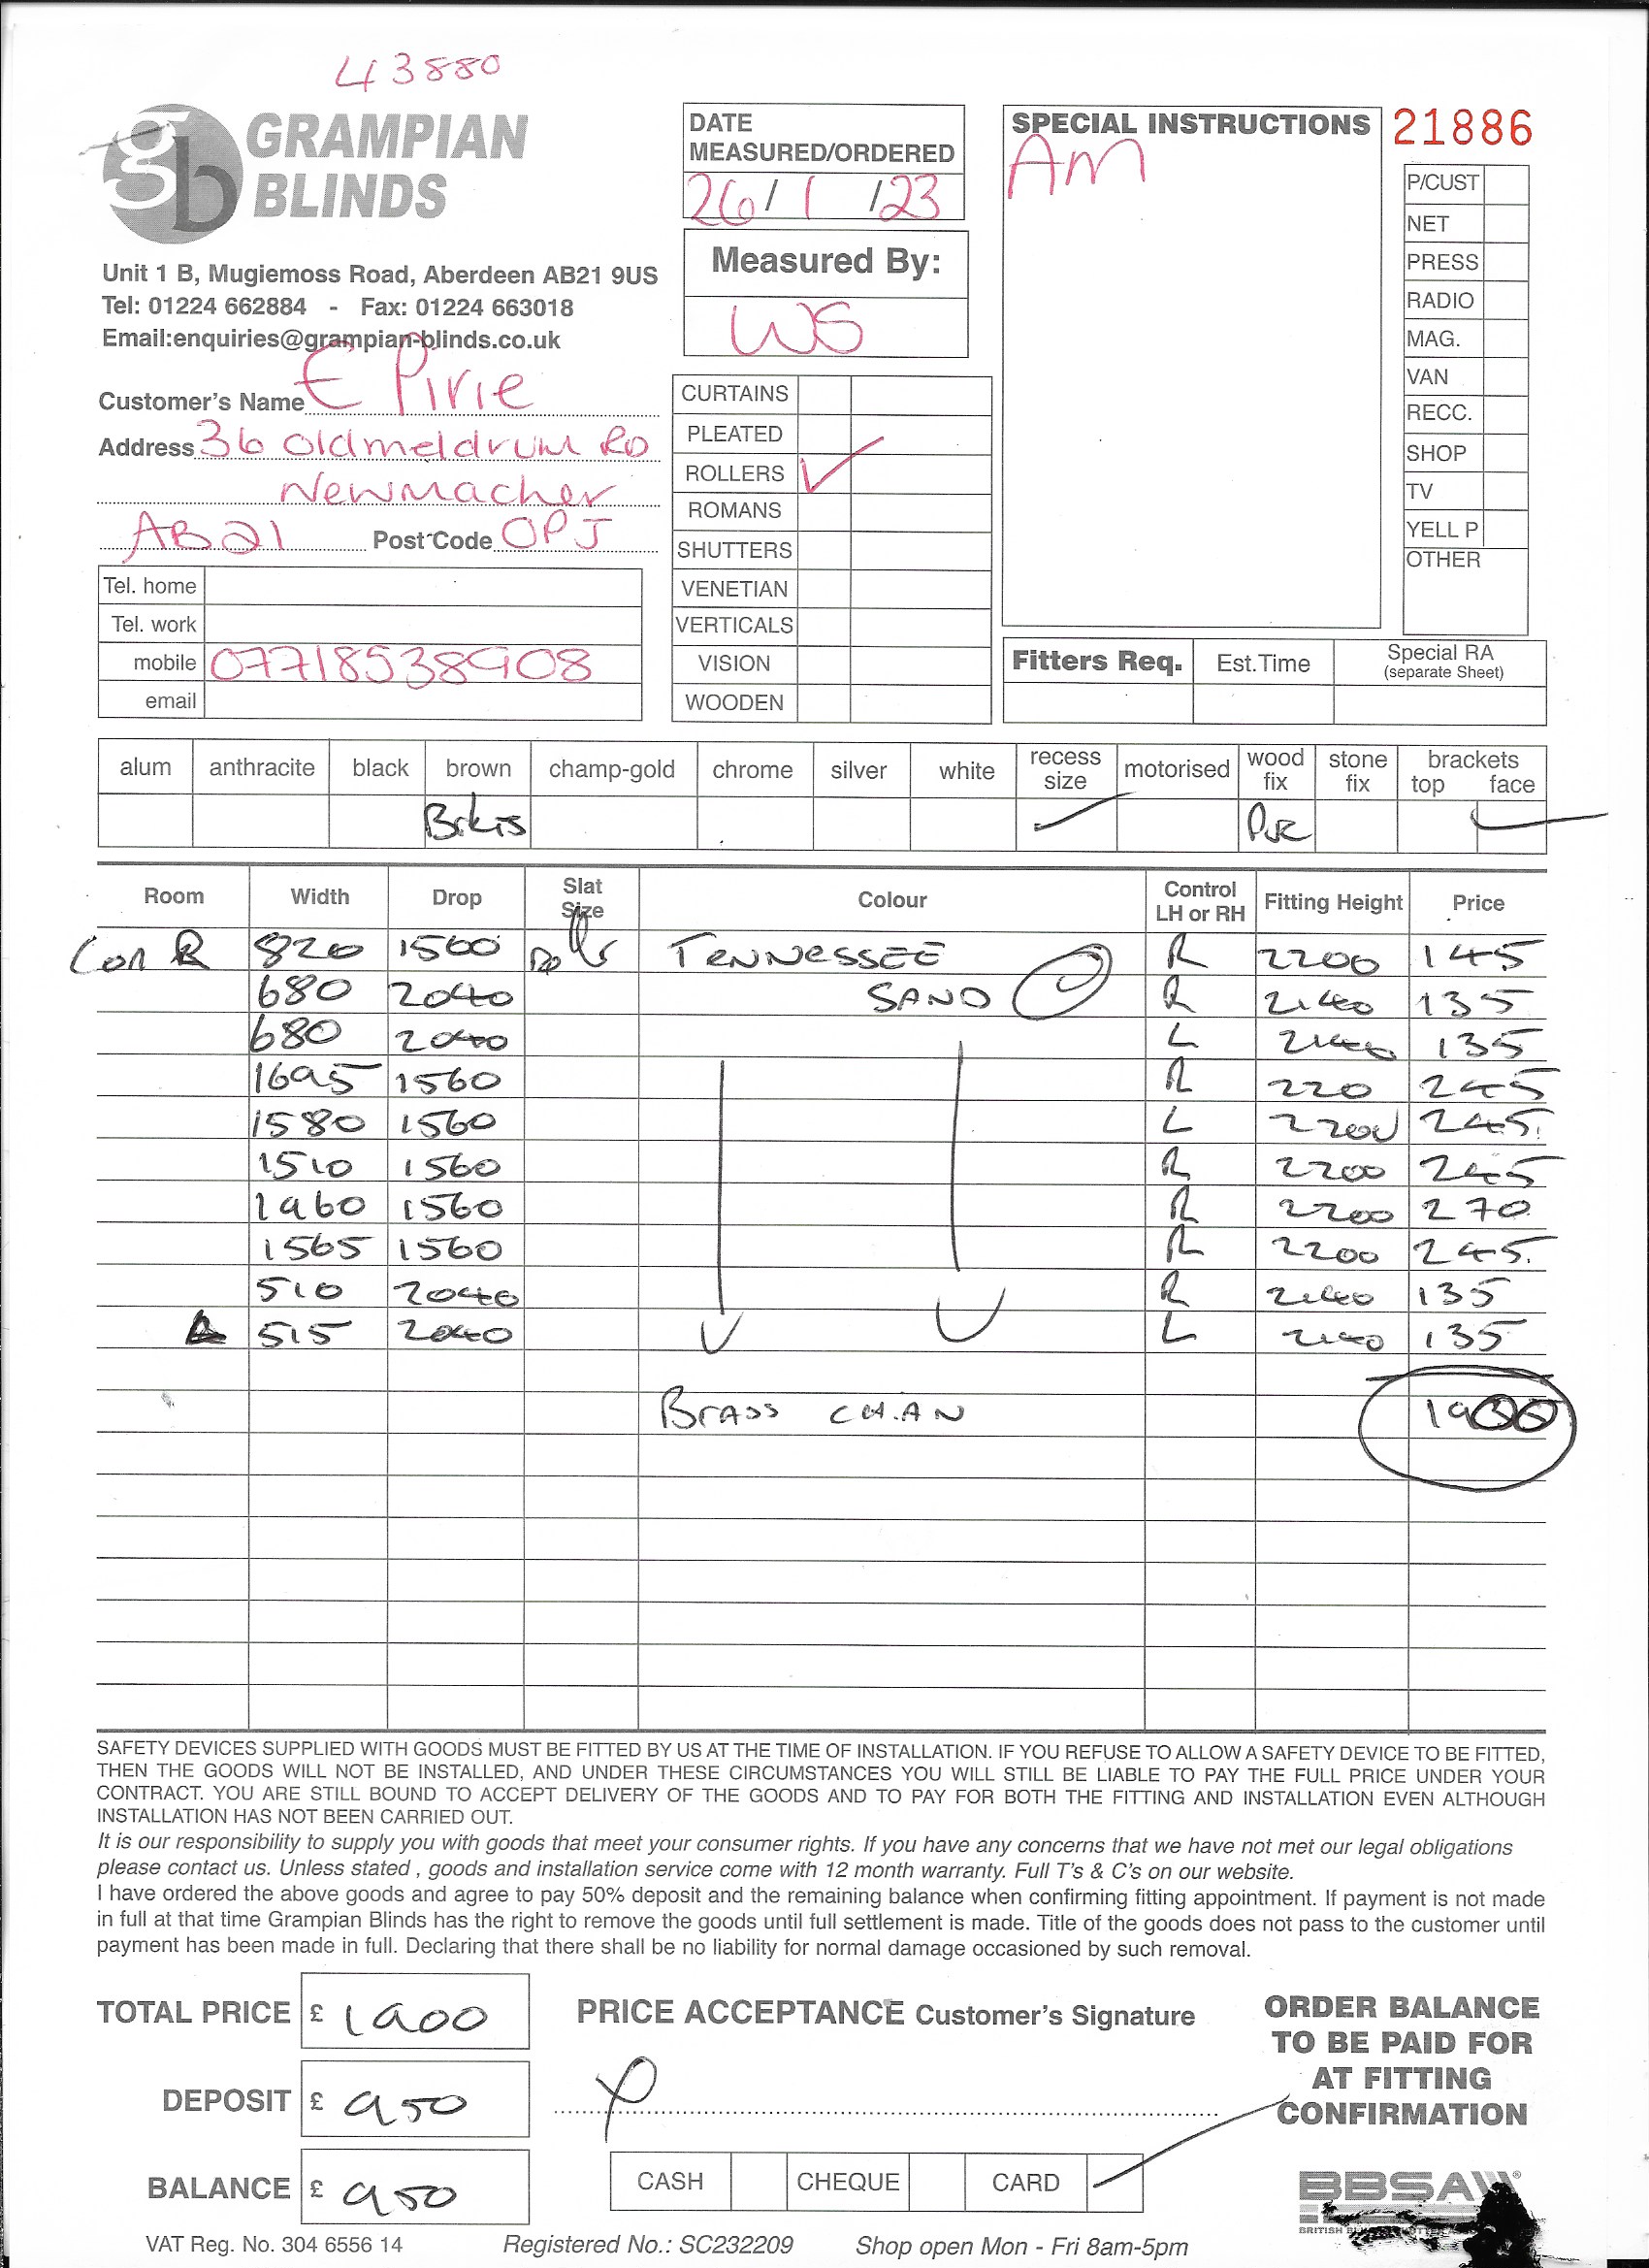 43880
GRAMPIAN
BLINDS
Unit 1 B, Mugiemoss Road, Aberdeen AB21 9US
Tel: 01224 662884 - Fax: 01224 663018
Email:enquiries@grampian-blinds.co.uk
Customer's Name E Pirie
Address 36 Oldmeldrum RD
Newmacher
AB21 Post Code OPJ
Tel. home
Tel. work
mobile 07718538908
email
DATE
MEASURED/ORDERED
26/1/23
Measured By:
WS
CURTAINS
PLEATED
ROLLERS ✓
ROMANS
SHUTTERS
VENETIAN
VERTICALS
VISION
WOODEN
SPECIAL INSTRUCTIONS
AM
21886
P/CUST
NET
PRESS
RADIO
MAG.
VAN
RECC.
SHOP
TV
YELL P
OTHER
Fitters Req. Est.Time Special RA
(separate Sheet)
alum anthracite black brown champ-gold chrome silver white recess size motorised wood fix stone fix brackets top face
Brkts ✓ ✓
Room Width Drop Slat Size Colour Control LH or RH Fitting Height Price
Con R 820 1560 TENNESSEE R 2200 145
680 2040 SAND R 2140 135
680 2040 L 2140 135
1695 1560 R 220 245
1580 1560 L 2200 245.
1510 1560 R 2200 245
1960 1560 R 2200 270
1565 1560 R 2200 245.
510 2040 R 2140 135
515 2040 L 2140 135
Brass CHAN 1900
SAFETY DEVICES SUPPLIED WITH GOODS MUST BE FITTED BY US AT THE TIME OF INSTALLATION. IF YOU REFUSE TO ALLOW A SAFETY DEVICE TO BE FITTED,
THEN THE GOODS WILL NOT BE INSTALLED, AND UNDER THESE CIRCUMSTANCES YOU WILL STILL BE LIABLE TO PAY THE FULL PRICE UNDER YOUR
CONTRACT. YOU ARE STILL BOUND TO ACCEPT DELIVERY OF THE GOODS AND TO PAY FOR BOTH THE FITTING AND INSTALLATION EVEN ALTHOUGH
INSTALLATION HAS NOT BEEN CARRIED OUT.
It is our responsibility to supply you with goods that meet your consumer rights. If you have any concerns that we have not met our legal obligations
please contact us. Unless stated , goods and installation service come with 12 month warranty. Full T's & C's on our website.
I have ordered the above goods and agree to pay 50% deposit and the remaining balance when confirming fitting appointment. If payment is not made
in full at that time Grampian Blinds has the right to remove the goods until full settlement is made. Title of the goods does not pass to the customer until
payment has been made in full. Declaring that there shall be no liability for normal damage occasioned by such removal.
TOTAL PRICE £ 1900
DEPOSIT £ 950
BALANCE £ 950
PRICE ACCEPTANCE Customer's Signature
CASH CHEQUE CARD ✓
ORDER BALANCE
TO BE PAID FOR
AT FITTING
CONFIRMATION
BBSA
BRITISH
VAT Reg. No. 304 6556 14 Registered No.: SC232209 Shop open Mon - Fri 8am-5pm